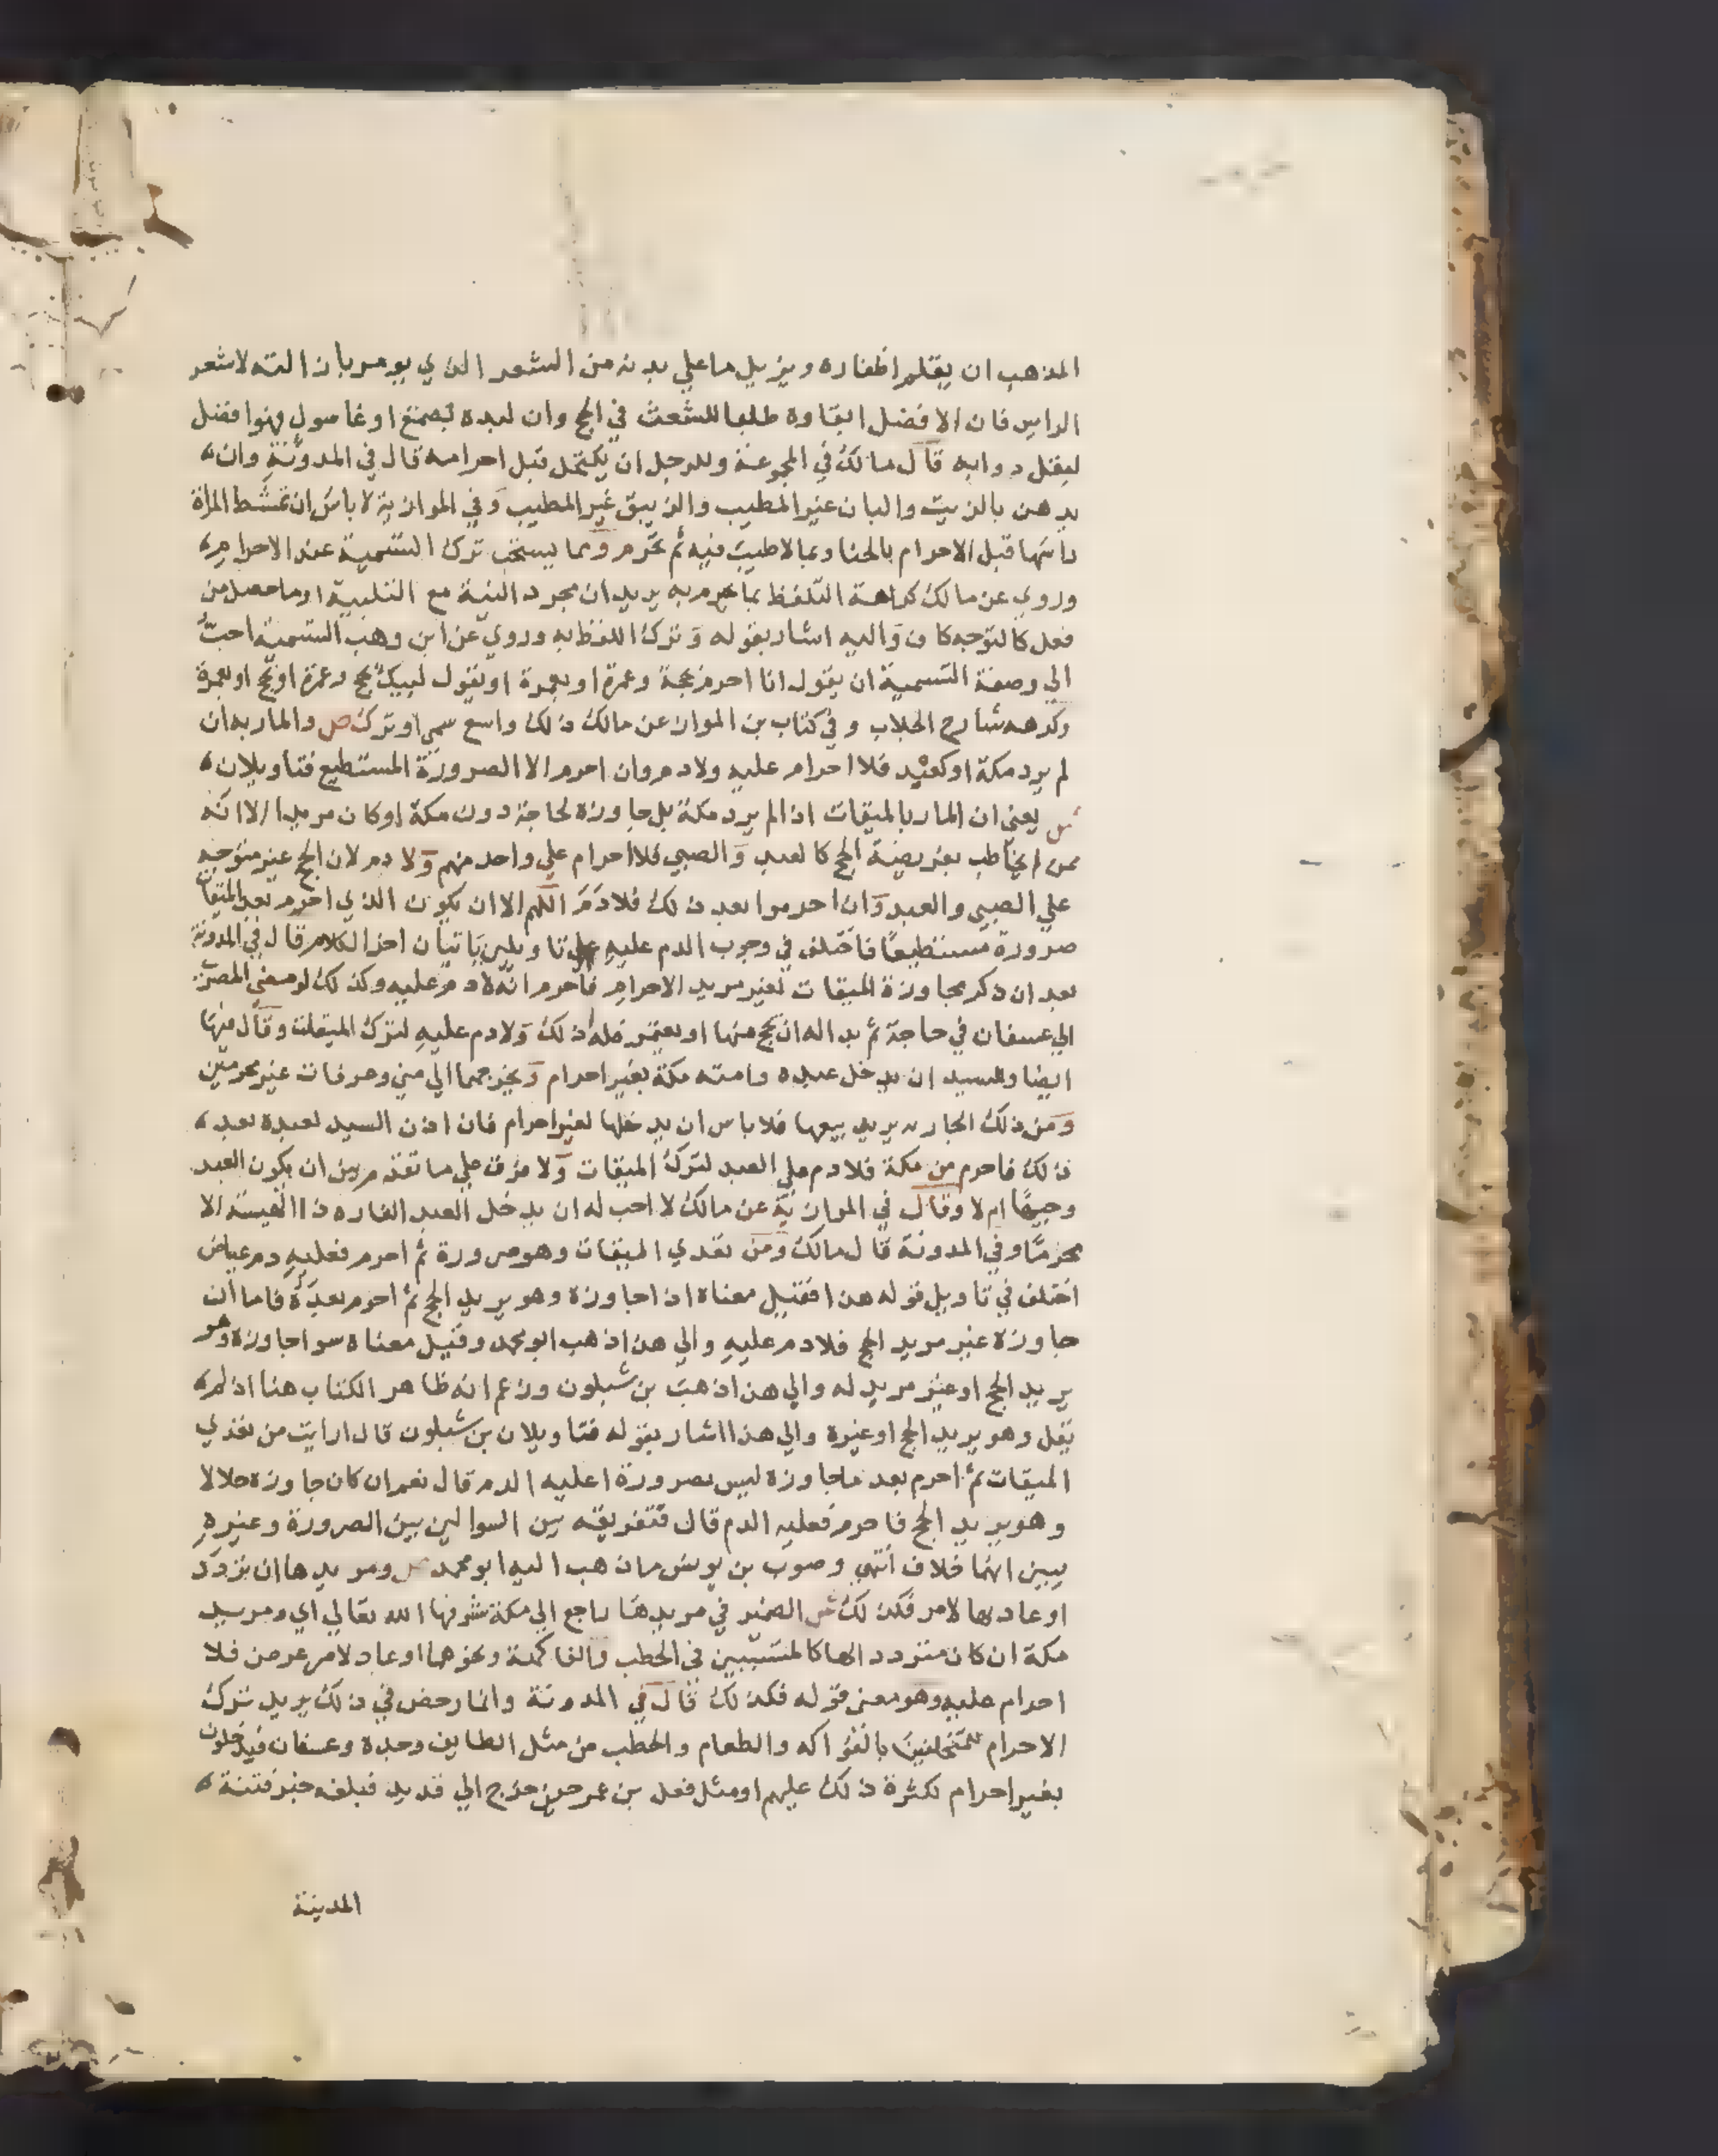 المذهب ان يقلم اظفاره ويزيل ما علي بدنه من الشعر الذي يومر بازالته لا شعر
الراس فان الافضل ابقاوه طلبا للشعث في الحج وان لبده بصمغ او غاسول فهو افضل
ليقتل دوابه قال مالك في المجموعة وللرجل ان يكتحل قبل احرامه قال في المدونة وان
يدهن بالزيت والبان غير المطيب والزيبق غير المطيب وفي الموازية لا باس ان تمشط المراة
راسها قبل الاحرام بالحنا وبما لا طيب فيه ثم تحرم ومما يستحب ترك التسمية عند الاحرام
وروي عن مالك كراهة التلفظ بما يحرم به يريد ان مجرد النية مع التلبية او ما حصل من
فعل كالتوجه كاف واليه اشار بقوله وترك اللفظ به وروي عن ابن وهب التسمية احب
الي وصفة التسمية ان يقول انا احرم بحجة وعمرة او بعمرة او يقول لبيك بحج وعمرة او بحج او بعمرة
وكرهه شارح الجلاب وفي كتاب بن المواز عن مالك ذلك واسع سمي او ترك ص والمار به ان
لم يرد مكة او كعبد فلا احرام عليه ولا دم وان احرم الا الصرورة المستطيع فتاويلان
ش يعني ان المار بالميقات اذا لم يرد مكة بل جاوزه لحاجة دون مكة او كان مريدا الا انه
ممن لم يخاطب بفريضة الحج كالعبد والصبي فلا احرام علي واحد منهم ولا دم لان الحج غير متوجه
علي الصبي والعبد وان احرموا بعد ذلك فلا دم اللهم الا ان يكون الذي احرم بعد الميقات
صرورة مستطيعا فاختلف في وجوب الدم عليه علي تاويلين ياتيان اخر الكلام قال في المدونة
بعد ان ذكر مجاوزة الميقات لغير مريد الاحرام فاحرم انه لا دم عليه وكذلك لو مضي المصري
الي عسفان في حاجة ثم بدا له ان يحج منها او يعتمر فله ذلك ولا دم عليه لترك الميقات وقال فيها
ايضا وللسيد ان يدخل عبده وامته مكة بغير احرام ويخرجهما الي مني وعرفات غير محرمين
ومن ذلك الجارية يريد بيعها فلا باس ان يدخلها بغير احرام فان اذن السيد لعبده بعد
ذلك فاحرم من مكة فلا دم علي العبد لترك الميقات ولا فرق علي ما تقدم بين ان يكون العبد
وجيها ام لا وقال في الموازية عن مالك لا احب له ان يدخل العبد الفاره ذا الهيئة الا
محرما وفي المدونة قال مالك ومن تعدي الميقات وهو صرورة ثم احرم فعليه دم عياض
اختلف في تاويل قوله هذا فقيل معناه اذا جاوزه وهو يريد الحج ثم احرم بعده فاما ان
جاوزه غير مريد الحج فلا دم عليه والي هذا ذهب ابو محمد وقيل معناه سوا جاوزه وهو
يريد الحج او غير مريد له والي هذا ذهب بن شبلون وزعم انه ظاهر الكتاب هنا اذ لم
يقل وهو يريد الحج او غيره والي هذا اشار بقوله فتاويلان بن شبلون قال ارايت من تعدي
الميقات ثم احرم بعد ما جاوزه ليس بصرورة اعليه الدم قال نعم ان كان جاوزه حلالا
وهو يريد الحج فاحرم فعليه الدم قال فتفريقه بين السوالين بين الصرورة وغيره
يبين انها خلاف انتهي وصوب بن يونس ما ذهب اليه ابو محمد ص ومريدها ان تردد
او عاد بها لامر فكذلك ش الضمير في مريدها راجع الي مكة شرفها الله تعالي اي ومريد
مكة ان كان متردد الها كالمتسببين في الحطب والفاكهة ونحوهما او عاد لامر عرض فلا
احرام عليه وهو معني قوله فكذلك قال في المدونة وانما رخص في ذلك يريد ترك
الاحرام للمختلفين بالفواكه والطعام والحطب من مثل الطايف وجدة وعسفان فيدخلون
بغير احرام لكثرة ذلك عليهم او مثل فعل بن عمر حين خرج الي قديد فبلغه خبر فتنة
المدينة